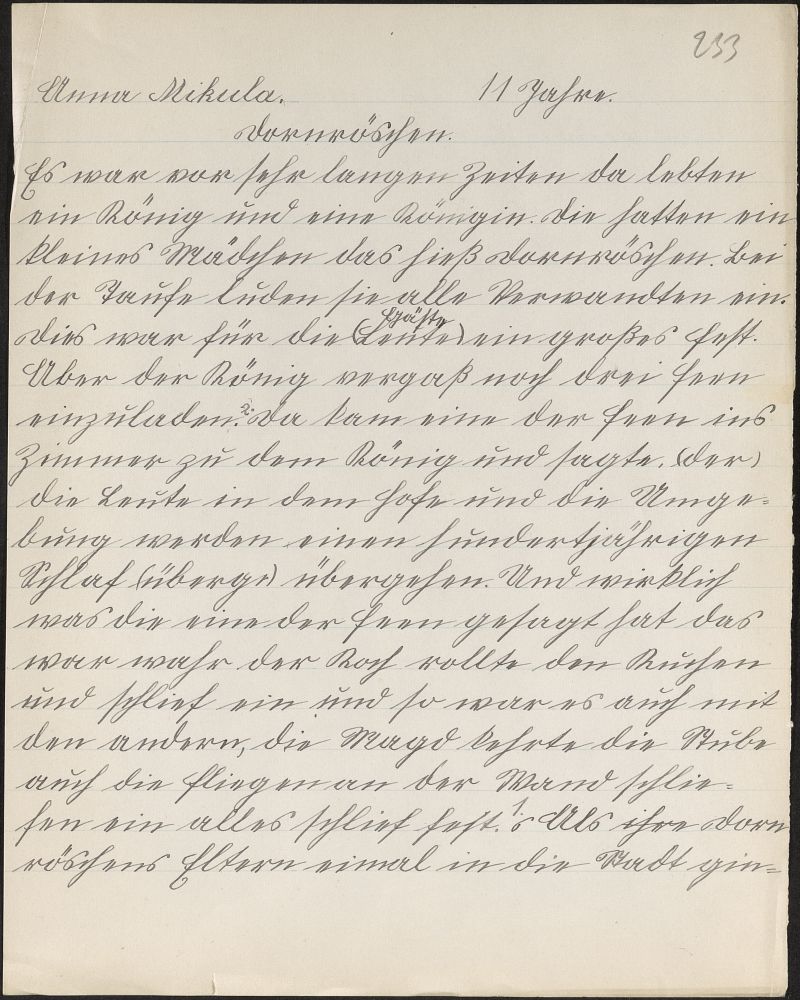 233
Anna Mikula. 11 Jahre.
Dornröschen.
Es war vor sehr langen Zeiten da lebten
ein König und eine Königin. Die hatten ein
kleines Mädchen das hieß Dornröschen. Bei
der Taufe luden sie alle Verwandten ein.
Gäste
Dies war für die (Leute) ein großes Fest.
Aber der König vergaß noch drei Feen
einzuladen. 2. Da kam eine der Feen ins
Zimmer zu dem König und sagte. (der)
die Leute in dem Hofe und die Umge=
bung werden einen hundertjährigen
Schlaf (überge) übergehen. Und wirklich
was die eine der Feen gesagt hat das
war wahr der Koch rollte den Kuchen
und schlief ein und so war es auch mit
den andern, die Magd kehrte die Stube
auch die Fliegen an der Wand schlie=
fen ein alles schlief fest. 1. Als ihre Dorn
röschens Eltern eimal in die Stadt gin=